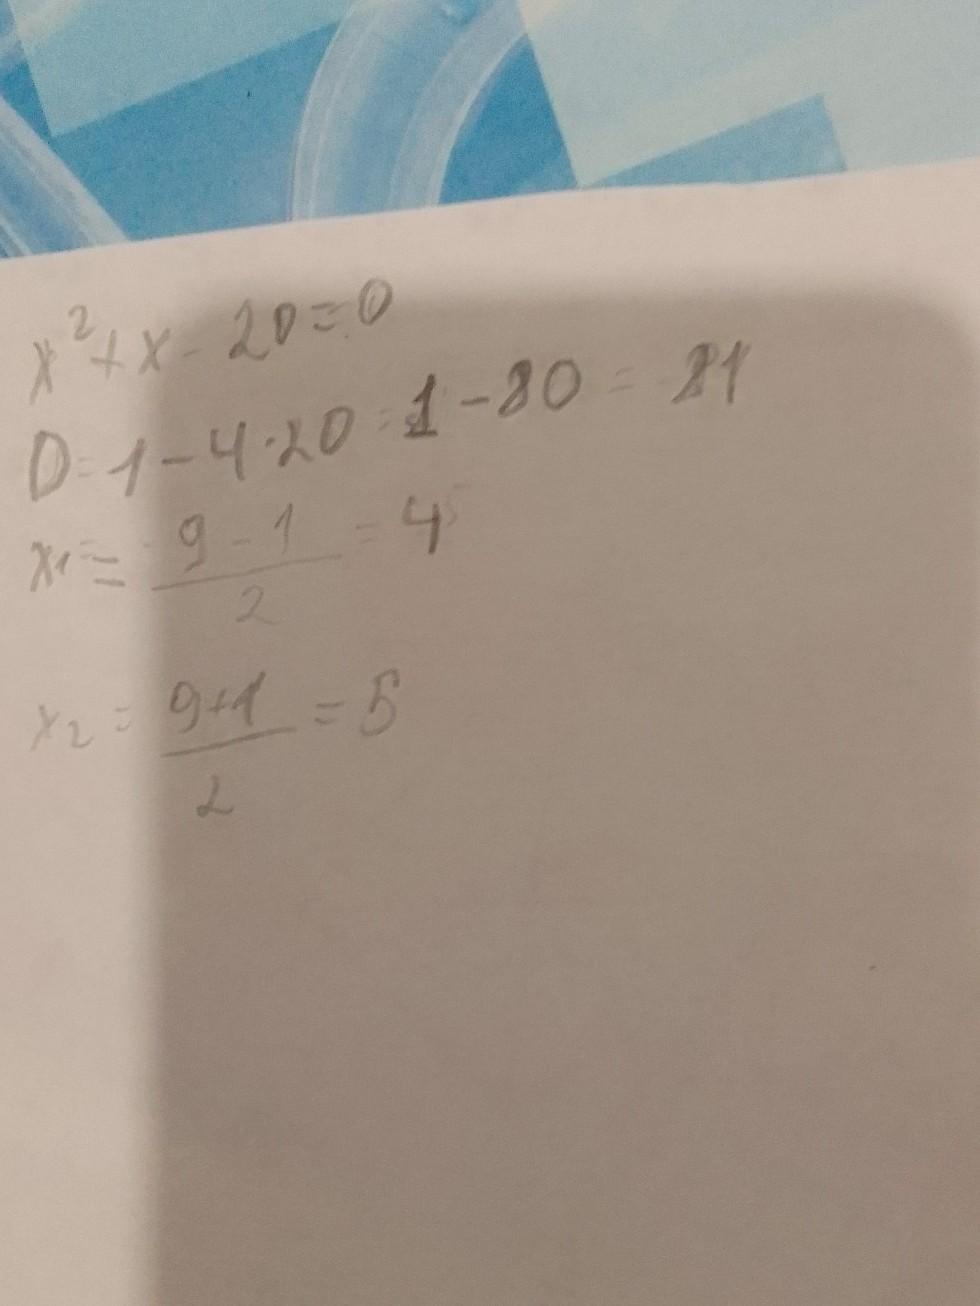 x²+x-20=0
D=1-4·20=1-80=81
x₁=9-1/2=4
x₂=9+1/2=5